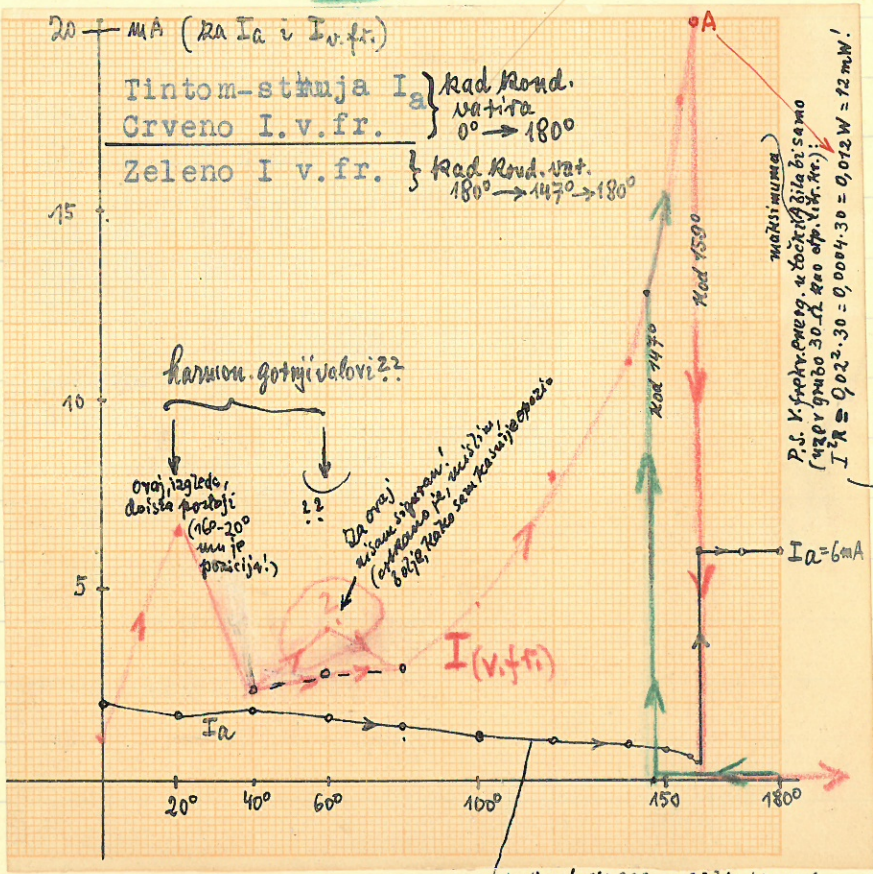 20 — mA (za Ia i Iv.fr.)
Tintom-struja Ia
Crveno I.v.fr.
} kad kond.
vatira
0° → 180°
Zeleno I v.fr.
} kad kond. vat.
180° → 147° → 180°
15
10
5
harmon. gornji valovi??
ovaj, izgleda,
doista postoji
(16°-20°
mu je
pozicija!)
??
za ovaj
nisam siguran!
(otkrono je, mislim,
bolje, kako sam kasnije opazio
?
I(v.fr.)
Ia
Kod 147°
Kod 159°
A
Ia=6mA
maksimuma
P.S. V.frekv. energ. u točki A bila bi samo
(uzev grubo 30 Ω kao otp. titr. kr.):
I²R = 0,02²·30 = 0,0004·30 = 0,012 W = 12mW!
20° 40° 60° 100° 150 180°